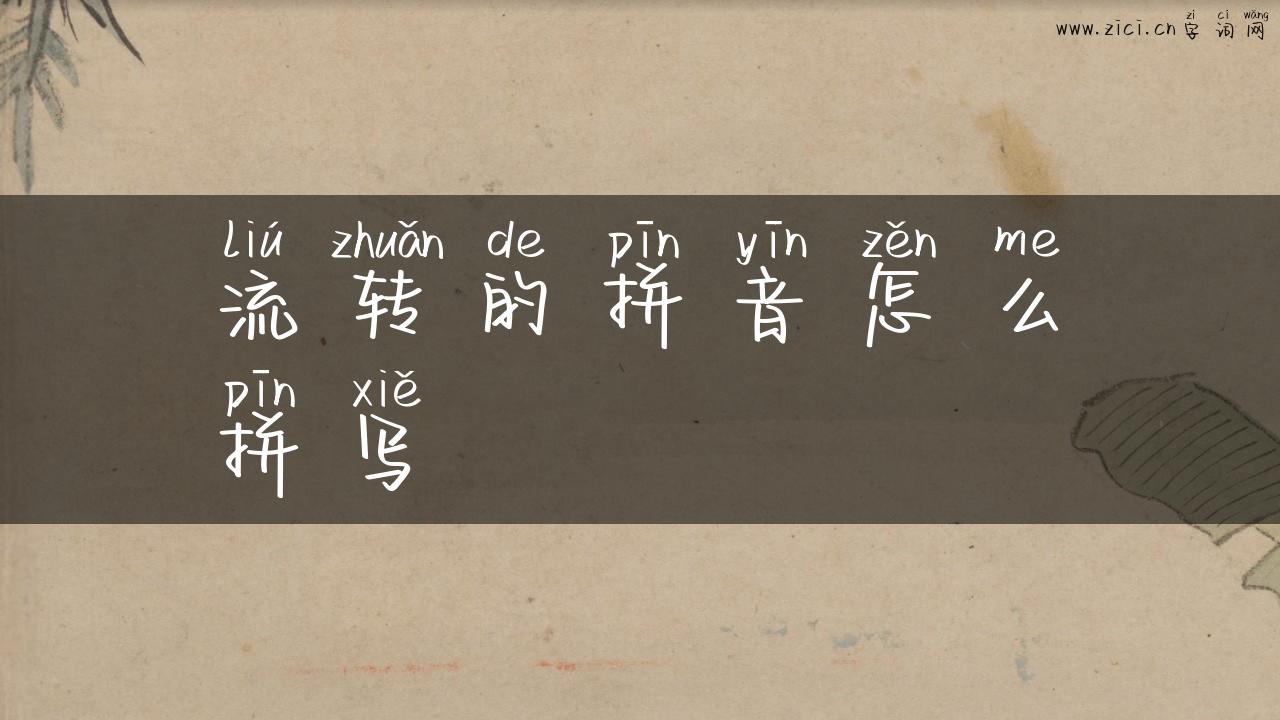 zì cí wǎng
www.zici.cn 字 词 网
liú zhuǎn de pīn yīn zěn me
流 转 的 拼 音 怎 么
pīn xiě
拼 写